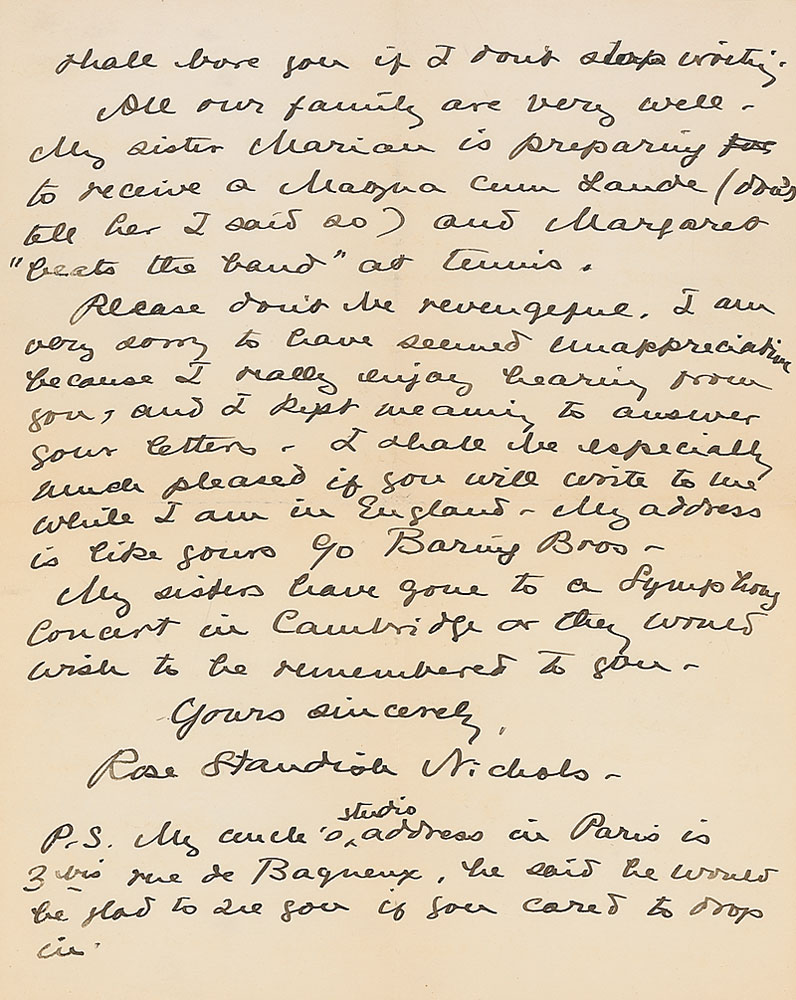 shall bore you if I don't stop writing.
All our family are very well -
My sister Marian is preparing for
to receive a Magna Cum Laude (don't
tell her I said so) and Margaret
"beats the band" at tennis.
Please don't be revengeful. I am
very sorry to have seemed unappreciative
because I really enjoy hearing from
you, and I kept meaning to answer
your letters - I shall be especially
much pleased if you will write to me
while I am in England - My address
is like yours c/o Baring Bros -
My sisters have gone to a Symphony
Concert in Cambridge or they would
wish to be remembered to you -
Yours sincerely,
Rose Standish Nichols -
studio
P.S. My uncle's address in Paris is
3 bis rue de Bagneux, he said he would
be glad to see you if you cared to drop
in.